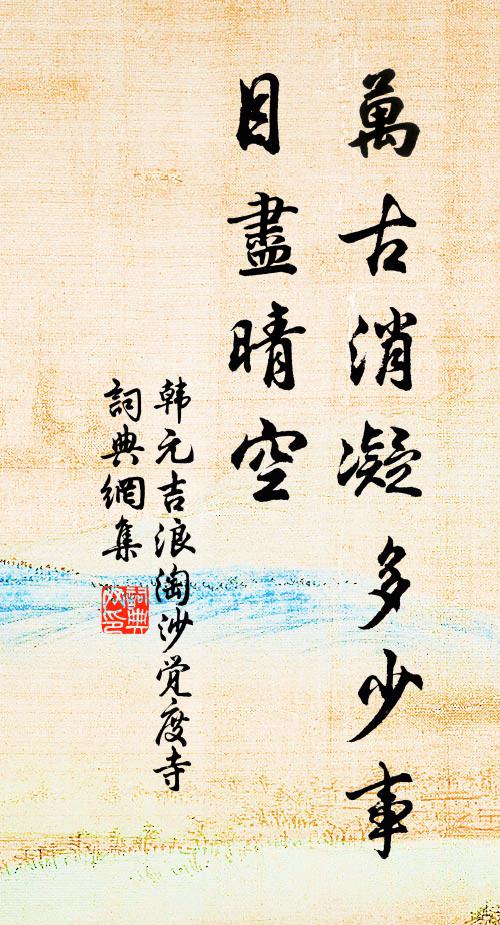 萬古消凝多少事
目盡晴空
韩元吉浪淘沙觉度寺
詞典網集